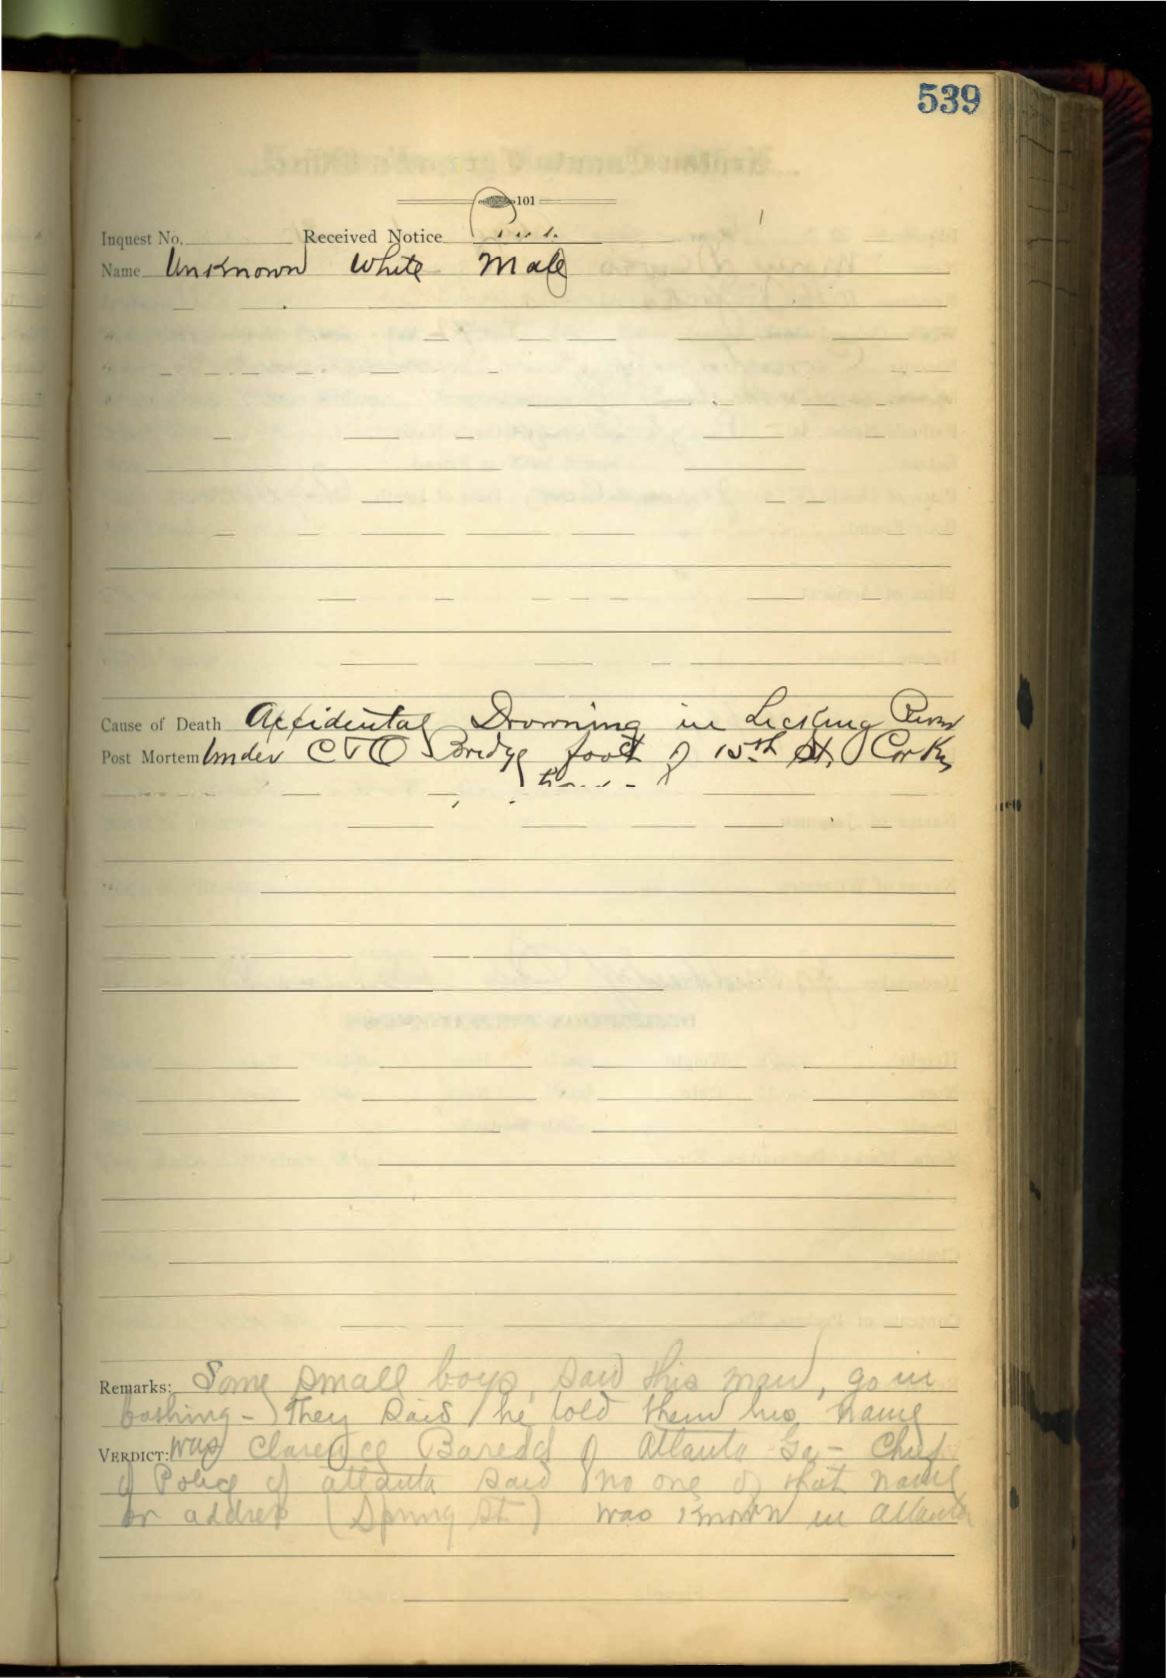 539
101
Inquest No. Received Notice
Name Unknown White Male
Cause of Death Accidental Drowning in Licking River
Post Mortem Under C & O Bridge foot of 15th St. Cov Ky
Remarks: Some small boys, said this man, go in
bathing - They said he told them his name
VERDICT: was Clarence of Atlanta Ga - Chief
of Police of Atlanta said no one of that name
or address (Spring St) was known in Atlanta